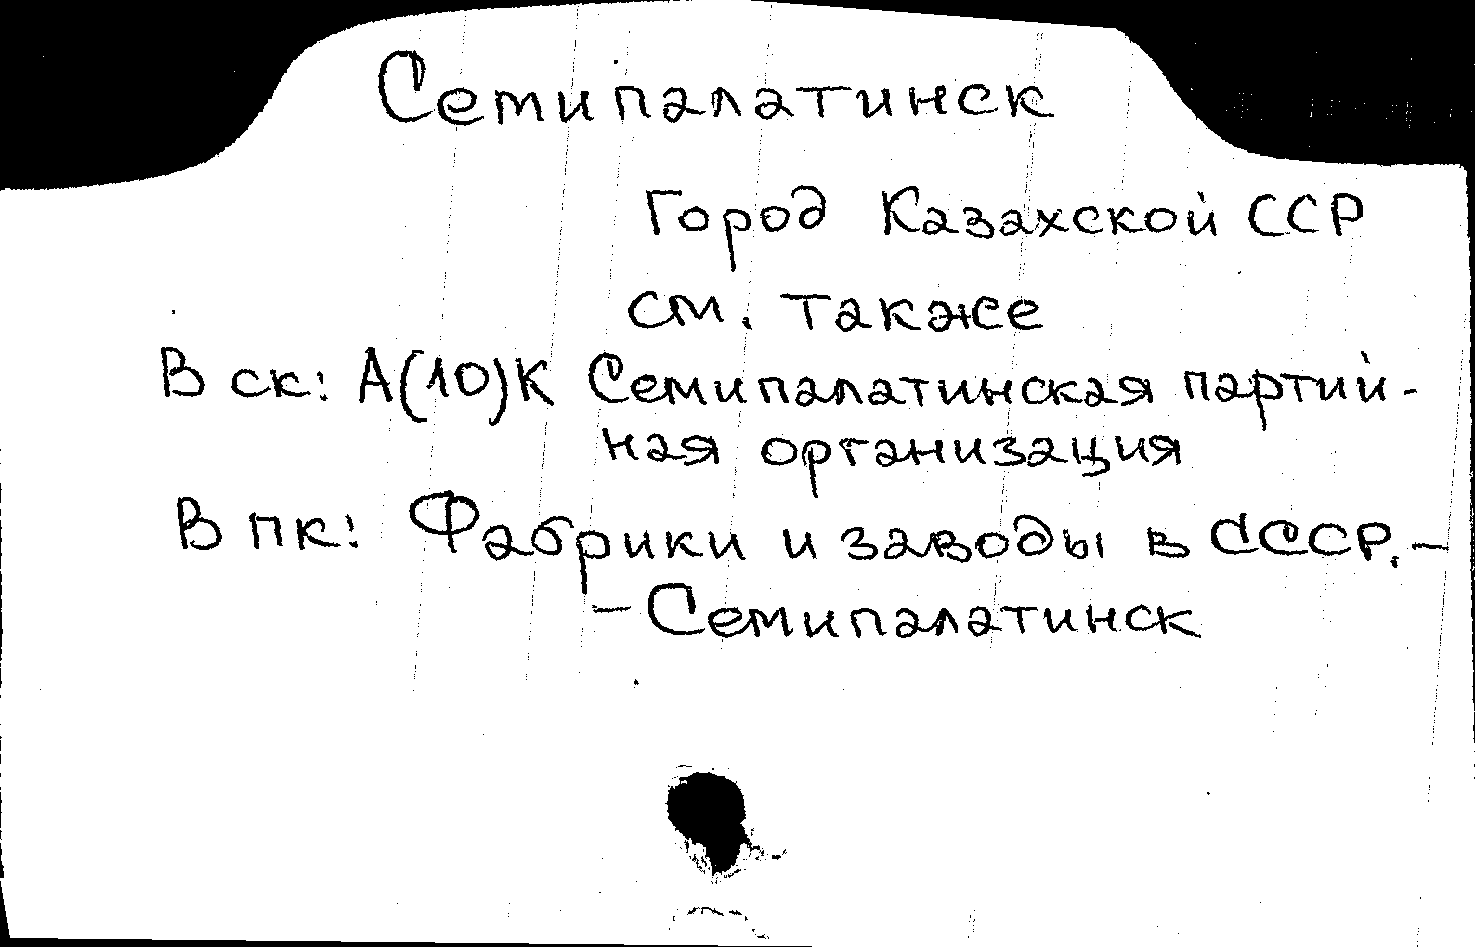 Семипалатинск
Город Казахской ССР
см. также
В ск: А(10)К Семипалатинская партий-
ная организация
В пк: Фабрики и заводы в СССР. –
– Семипалатинск